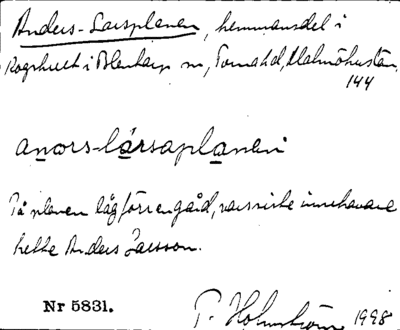 Anders-Larsplanen, hemmansdel i
Rogshult i Blentarp sn, Torna hd, Malmöhus län.
144
anors-lársaplanen
På planen låg förr en gård, vars siste innehavare
hette Anders Larsson.
Nr 5831.
T. Holmström 1998